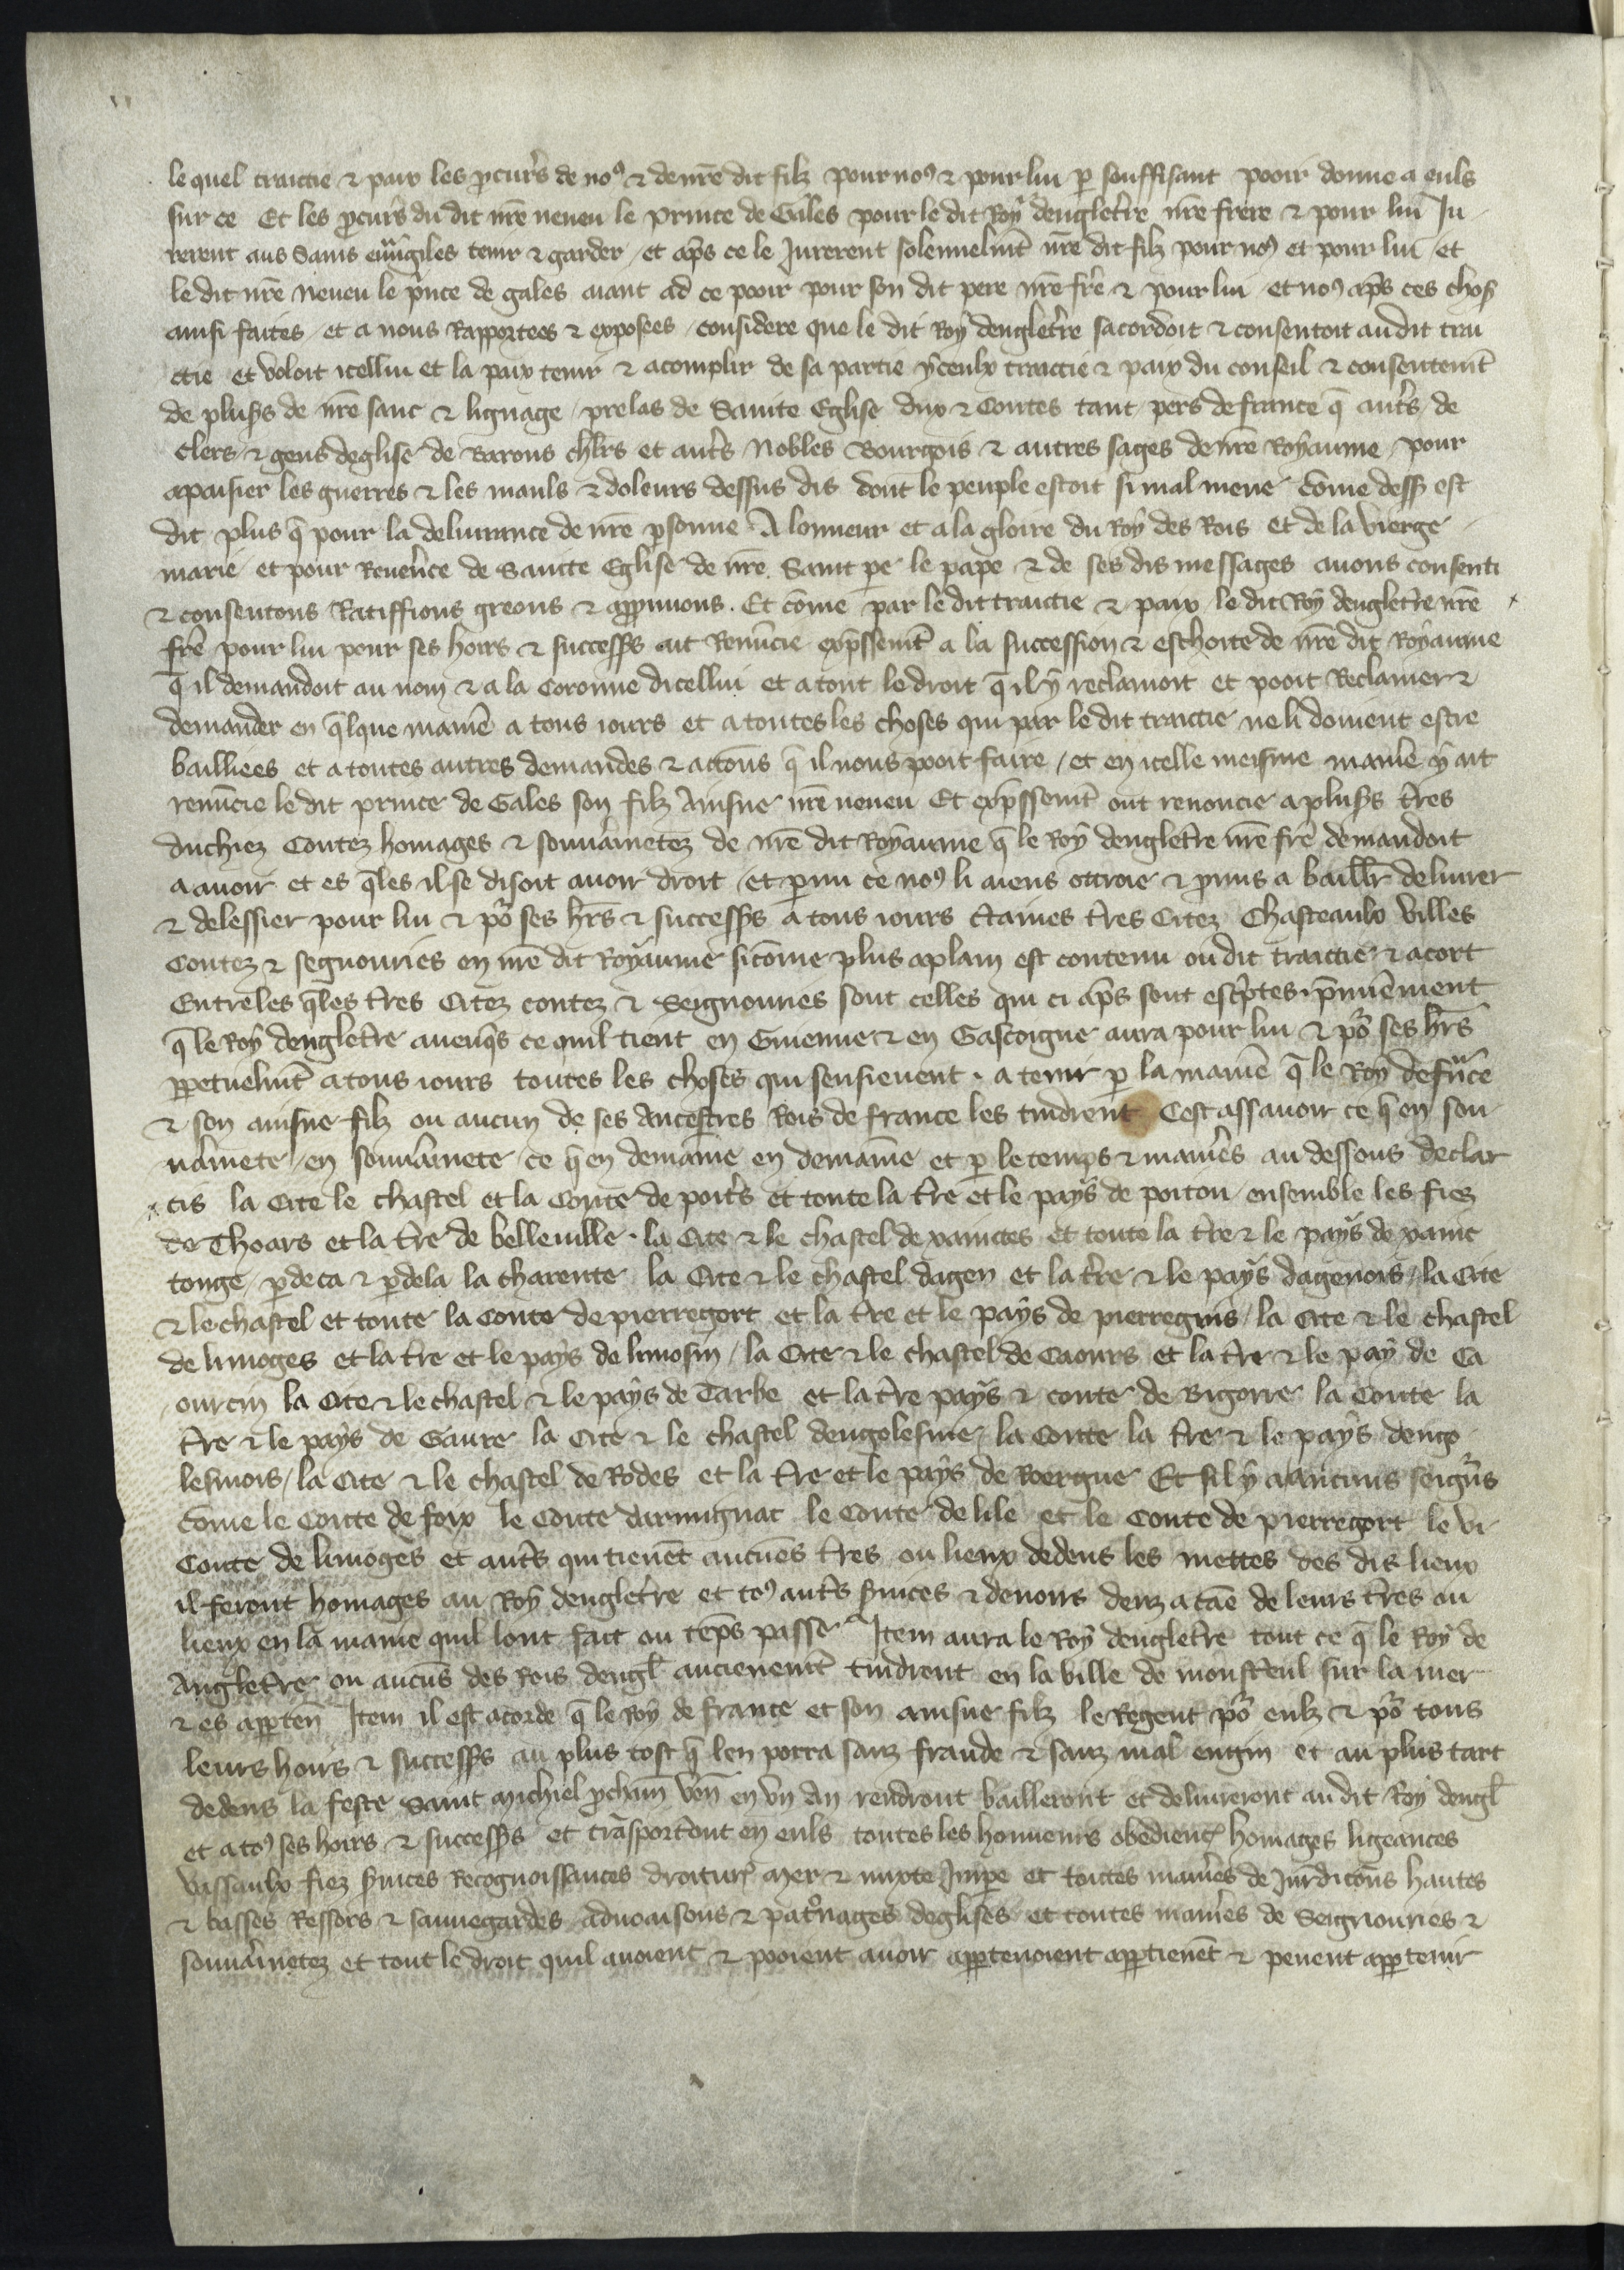 le quel traictie & paix les ꝓcur̄s de noꝰ & de nr̄e dit filz pour noꝰ & pour lui ꝑ souffisant pooir donne a euls
sur ce Et les ꝓcur̄s du dit nr̄e neueu le Prince de Gales pour le dit Roy dengletr̄e nr̄e frere & pour lui Ju
rerent aus Sains euuãgiles tenir & garder / et apr̄s ce le Jurerent solennelmt̄ nr̄e dit filz pour noꝰ et pour lui / et
le dit nr̄e neueu le p̄nce de gales aiant ad ce pooir pour son dit pere nr̄e fr̄e & pour lui et noꝰ apr̄s ces chos̄
ainsi faites / et a nous Rapportees & exposees / considere que le dit Roy dengletr̄e sacordoit & consentoit au dit trai
ctie et voloit icellui et la paix tenir & acomplir de sa partie yceulx traictie & paix du conseil & consentemt̄
de plus̄s de nr̄e sanc & lignage / prelas de Sainte Eglise dux & Contes tant pers de france q̄ aut̄s / de
clers / & gens deglise de Barons chl̄rs et aut̄s Nobles Bourgois & autres sages de nr̄e Royaume / pour
apaisier les guerres & les mauls & doleurs dessus dis dont le peuple estoit si mal mene cōme dess̄ est
dit plus q̄ pour la deliurance de nr̄e ꝑsonne A lonneur et a la gloire du Roy des Rois et de la vierge
marie et pour Reuer̄ce de Saincte Eglise de nr̄e Saint pe le pape & de ses dis messages auons consenti
& consentons Ratiffions greons & approuuons . Et cōme par le dit traictie & paix le dit Roy dengletr̄e nr̄e
fr̄e pour lui pour ses hoirs & success̄s ait Renūcie exp̄ssemt̄ a la succession & eschoite de nr̄e dit Royaume
q̄ il demandoit au nom & a la Coronne dicellui et a tout le droit q̄ il y reclamoit et pooit Reclamer &
demander en q̄lque manie̅ a tous iours et a toutes les choses qui par le dit traictie ne li doiuent estre
bailliees et a toutes autres demandes & actōns q̄ il nous pooit faire / et en icelle meisme manie̅ y ait
renūcie le dit prince de Gales son filz Ainsne nr̄e neueu Et exp̄ssemt̄ ont renoncie a plus̄s tr̄es
duchiez Contez homages & souuainetez de nr̄e dit Royaume q̄ le Roy dengletr̄e nr̄e fr̄e demandoit
a auoir et es q̄les il se disoit auoir droit / et ꝑmi ce noꝰ li aiens ottroie & ꝓmis a baillr̄ deliurer
& delessier pour lui & po͛ ses hr̄s & success̄s a tous iours c̄taines tr̄es Citez Chasteaulx Villes
Contez & segnouries en nr̄e dit Royaume si cōme plus aplain est contenu ou dit traictie & acort
Entre les q̄les tr̄es Citez contez & Seignouries sont celles qui ci apr̄s sont esc̄ptes . p̄mie̅ment
q̄ le Roy dengletr̄e aueuq̄s ce quil tient en Guienne & en Gascoigne aura pour lui & po͛ ses hr̄s
ꝑpetuelmt̄ a tous iours toutes les choses qui sensieuent . a tenir ꝑ la manie̅ q̄ le Roy de f̄nce
& son ainsne filz ou aucun de ses Ancestres Rois de france les tindrent Cest assauoir ce q̄ en sou
uainete / en souuainete / ce q̄ en demaine̅ en demaine̅ et ꝑ le temps & manie̅s au dessous declar
cis la Cite le chastel et la Conte de poit̄s et toute la tr̄e et le pays de poitou / ensemble les fiez
de Thoars et la tr̄e de belleuille . la Cite & le chastel de xainctes et toute la tr̄e & le pays de xainc
tonge / ꝑdeca & ꝑdela la charente la Cite & le chastel dagen et la tr̄e & le pays dagenois / la Cite
& le chastel et toute la Conte de pierregort et la tr̄e et le pays de pierreguis / la Cite & le chastel
de limoges et la tr̄e et le pays de limosin / la Cite & le chastel de Caours et la tr̄e & le pay de Ca
ourcin la Cite & le chastel & le pays de Tarbe et la tr̄e pays & conte de Bigorre la Conte la
tr̄e & le pays de Gaure la Cite & le chastel dengolesme / la Conte la tr̄e & le pays dengo
lesmois / la Cite & le chastel de Rodes et la tr̄e et le pays de Roergue Et sil y a aucuns seign̄s
cōme le Conte de foix le Conte darmignac le Conte de lile et le Conte de pierregort le vi
Conte de limoges et aut̄s qui tienēt aucūes tr̄es ou lieux dedens les mettes des dis lieux
il feront homages au Roy dengletr̄e et toꝰ aut̄s s̄uices & deuoirs deuz a cāe de leurs tr̄es ou
lieux en la manie̅ quil lont fait ou tēps passe Item aura le Roy dengletr̄e tout ce q̄ le Roy de
Angletr̄e ou aucūs des Rois dengl̄ ancienemt̄ tindrent en la ville de monsteul sur la mer
& es apꝑten̄ Item il est acorde q̄ le Roy de france et son ainsne filz le Regent po͛ eulz & po͛ tous
leurs hoirs & success̄s au plus tost q̄ len porra sanz fraude & sanz mal engin et au plus tart
dedens la feste Saint Michiel ꝓcham̄ ven̄ en vn an rendront bailleront et deliureront au dit Roy dengl̄
et a toꝰ ses hoirs & success̄s et trāsport̄ont en euls toutes les honneurs obedienc̄ homages ligeances
Vassaulx fiez s̄uices Recognoissances droitur̄ mer & mixte Imꝑe et toutes manie̅s de Jur̄dictōns hautes
& basses Ressors & sauuegardes / aduoaisons & pat̄onages deglises et toutes manie̅s de Seignouries &
souuainetez et tout le droit quil auoient & pooient auoir apꝑtenoient apꝑtienēt & peuent apꝑtenir